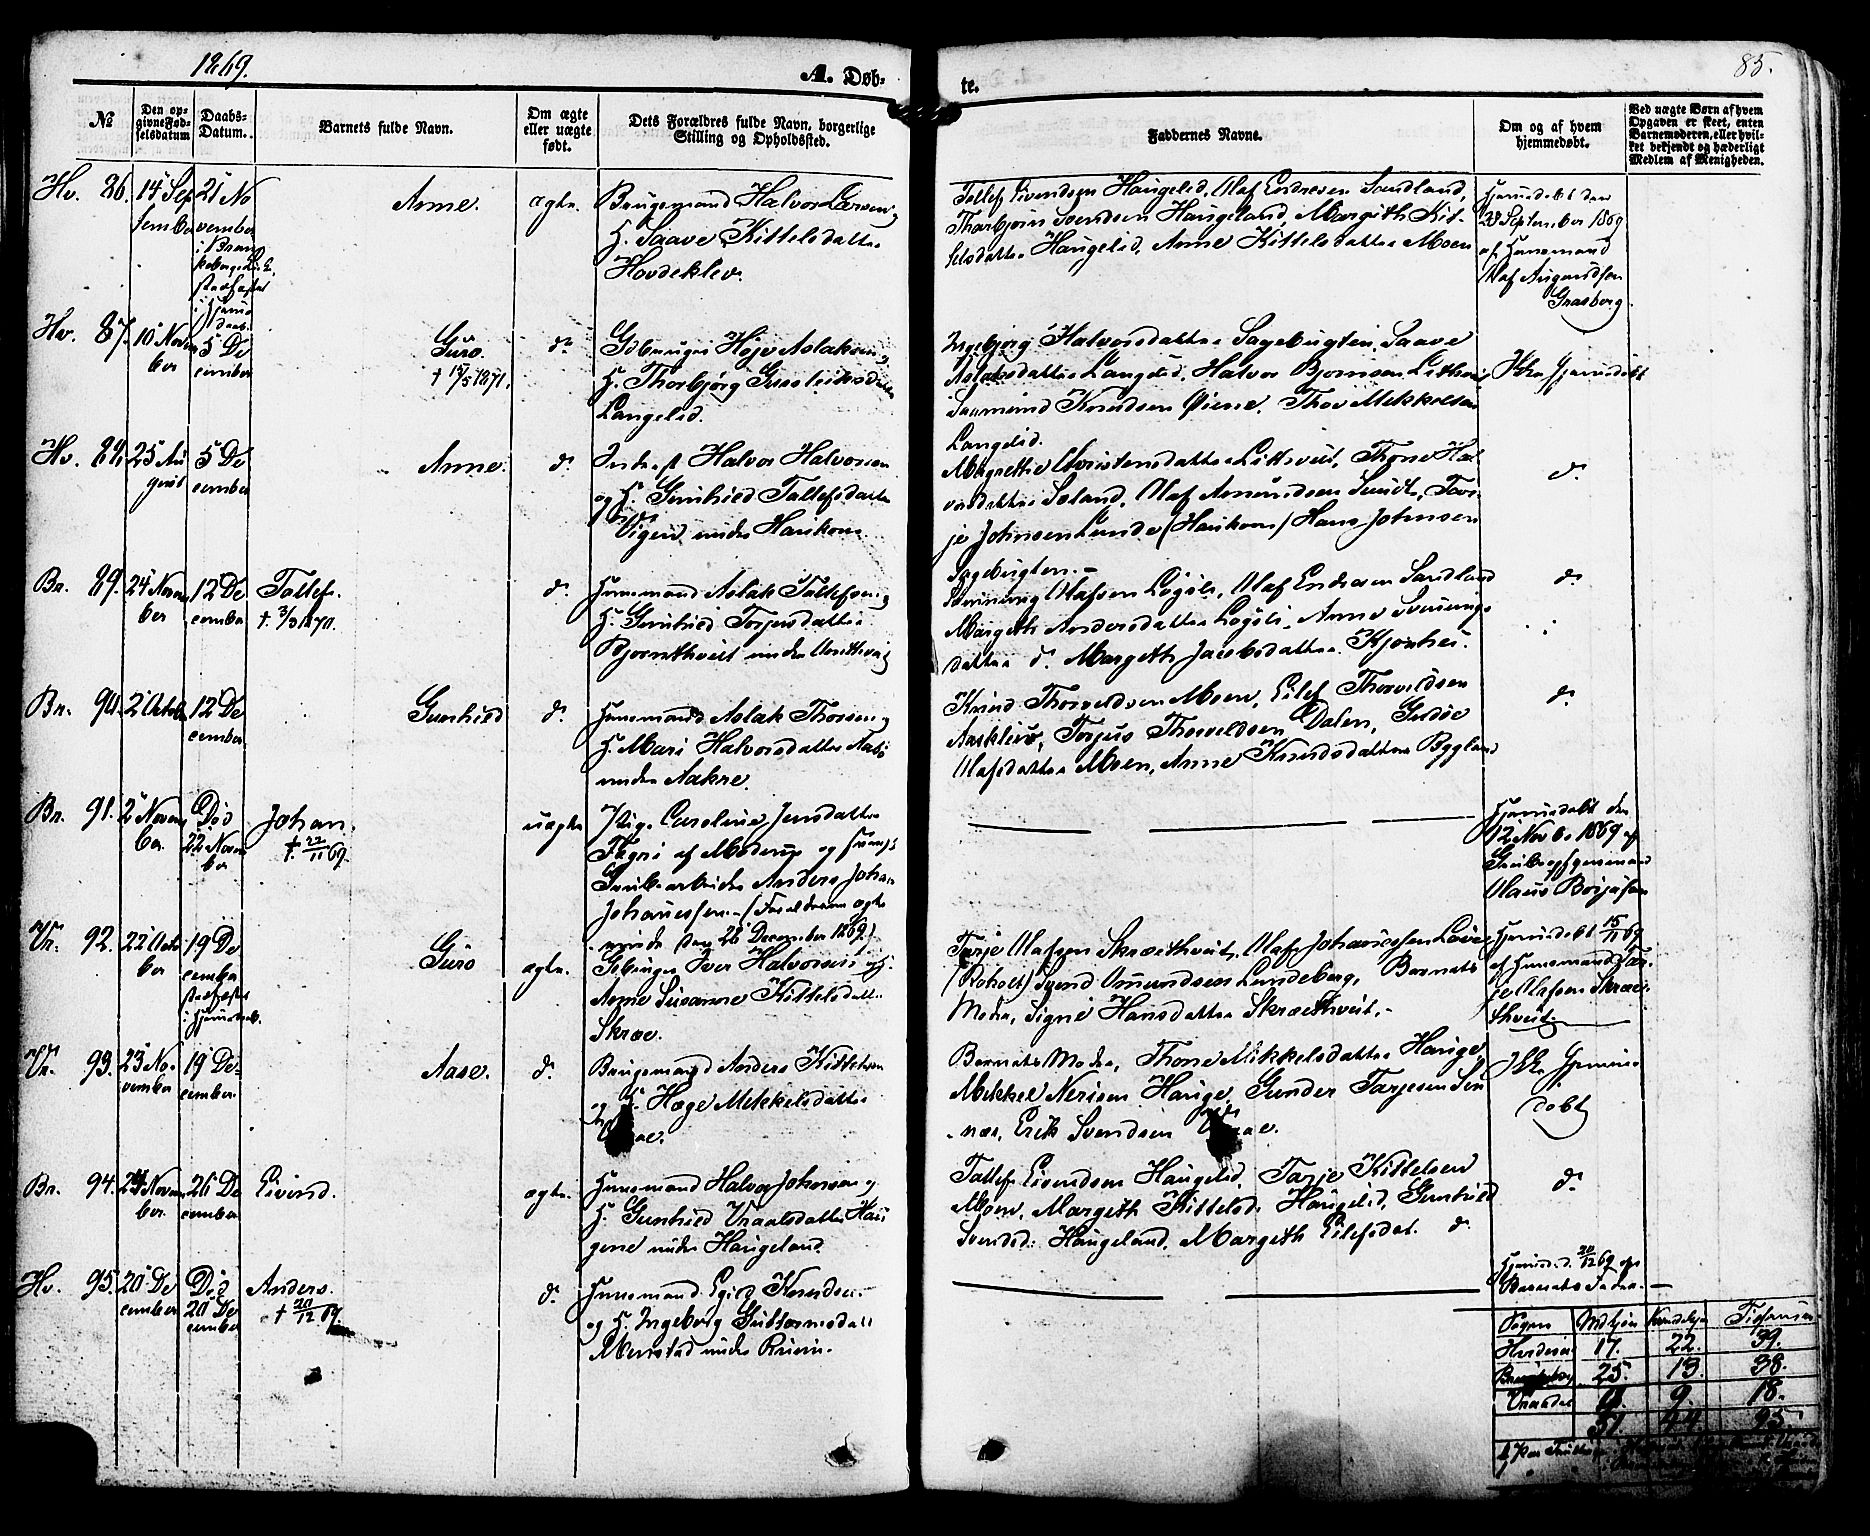 1869.
A. Døb-
te.
85.
№
Den op-
givne Fød-
selsdatum
Daabs-
Datum.
Barnets fulde Navn.
Om ægte
eller uægte
født.
Dets Forældres fulde Navn, borgerlige
Stilling og Opholdssted.
Faddernes Navne.
Om og af hvem
hjemmedøbt.
Ved uægte Børn af hvem
Opgaven er skeet, enten
Barnemoderen, eller hvil-
ket bekjendt og hæderligt
Medlem af Menigheden.
Hv. 86. 14 Sep
tember
21 No
vember
Anne. ægte.
Brugsmand Halvor Larsen
H. Saave Kittelsdatter
Hovdeklev.
Tallef Eivendsen Haugelid, Olaf Endresen Sandland,
Thorbjørn Svendsen Haugeland, Margith Kit-
telsdatter Haugelid, Anne Kittelsdatter Moen
Hjemmedøbt den
23 September 1869
af Huusmand
Olaf Augundsen
Grasberg.
Hv. 87. 10 Novem
ber
5 De
cember
Guro.
† 15/5 1871.
d°
Gdbruger Høje Aslaksen,
H. Thorbjørg Gunleiksdatter
Langelid.
Ingebjørg Halvorsdatter Sagebugten, Saave
Aslaksdatter Langelid, Halvor Bjørnsen
Saamund Knudsen Øiene, Thov Mikkelsen
Langelid.
Ikke hjemmedøbt
Hv. 88. 25 Au
gust
5 De
cember
Anne. d°
Inderst Halvor Halvorsen
og H. Gunhild Tallefsdatter
Vigen under Haukom
Margrethe Christensdatter Litsveit, Thone Hal
vorsdatter Seland, Olaf Asmundsen Sundt, Tor-
je Johnsen Lunde (Haukom) Hans Johnsen
Sagebugten.-
d°
Br. 89. 24 Novem
ber
12 De
cember
Tallef.
† 3/3 1870.
d°
Huusmand Aslak Tallefsen,
H. Gunhild Torjersdatter
Bjørnthveit under
Olafsen Løgsli, Olaf Endresen Sandland
Margeth Andersdatter Løgsli, Anne Svenungs
datter d°. Margeth Jacobsdatter
d°
Br. 90. 2 Octob
12 De
cember
Gunhild d°
Huusmand Aslak Thorsen,
H. Mari Halvorsdatter
under Aakre.
Knud Thorvaldsen Moen, Eilef Thorvaldsen
Torjus Thorvaldsen Dalen,
Olafsdatter Moen, Anne Knudsdatter Bygland
d°
Br. 91. 2 Novem
ber
Død
22 Novem
ber
Johan.
† 22/11 69.
uægte
Pige Caroline Jensdatter
af Moderup og
Grubearbeider Anders Johan
Johanessen.- (Forældrene ægte
den 26 December 1869)
Hjemmedøbt den
12 Novbr 1869 af
Olaus
Vr. 92. 22 Octo
ber
19 De
cember
stadfæstet
Hjemmedaab.
Guro ægte.
Gdbruger Iver Halvorsen og
Anne Susanne Kittelsdatter
Skræe.
Tarje Olafsen Skræithveit, Olaf Johannessen
(Roholt) Svend Omundsen Lundeberg, Barnets
Moder, Signe Hansdatter Skræithveit.-
Hjemmedøbt 15/11 69
af Huusmand Tar-
je Olafsen Skræi-
thveit.
Vr. 93. 23 No-
vember
19 De-
cember
Aase. d°
Brugsmand Anders Kittelsen
og H. Hæge Mikkelsdatter
Barnets Moder, Thone Mikkelsdatter Hauge,
Mikkel Nerisen Hauge, Gunder Tarjesen
næs, Erik Svendsen
Ikke hjemme
døbt
Br. 94. 24 Novem
ber
26 De
cember
Eivind. ægte.
Huusmand Halvor Johnsen
H. Gunhild Vraalsdatter Hau
gene under Haugeland.
Tallef Eivendsen Haugelid, Tarje Kittelsen
Moen, Margeth Kittelsd. Haugelid, Gunhild
Svendsd. Haugeland, Margeth Eilefsdat. d°
d°
Hv. 95. 20 De
cember
Død
20 De
cember
Anders.
† 20/12 69.
d°
Huusmand Egild Knudsen
og H. Ingeborg Guttormsdatt
under
Hjemmed. d. 20/12 69 af
Barnets Fader.-
Sogne Mdkjøn Kvindekjøn Tilsammen
Hvideseid 17. 22. 39.
Brunkeberg 25. 13. 38.
Vraadal 9. 18.
51 44. 95